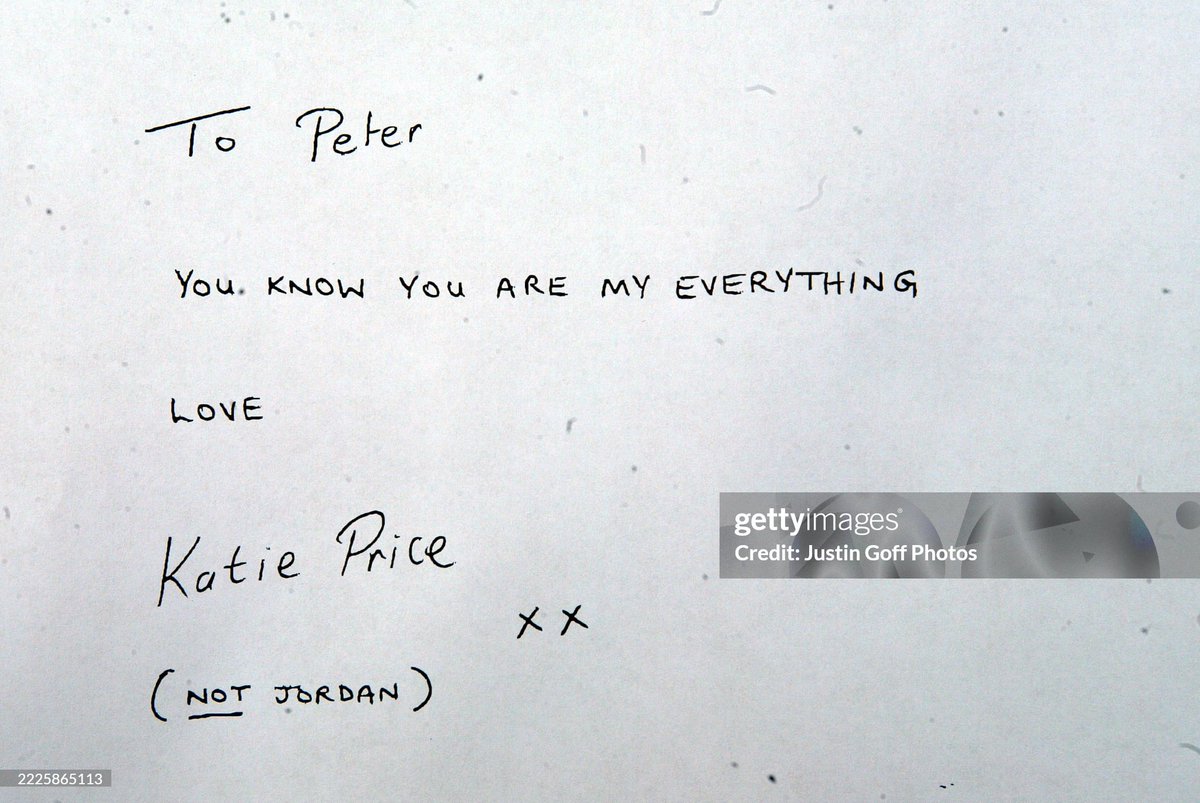 To Peter
YOU KNOW YOU ARE MY EVERYTHING
LOVE
Katie Price
xx
(NOT JORDAN)
gettyimages
Credit: Justin Goff Photos
2225865113